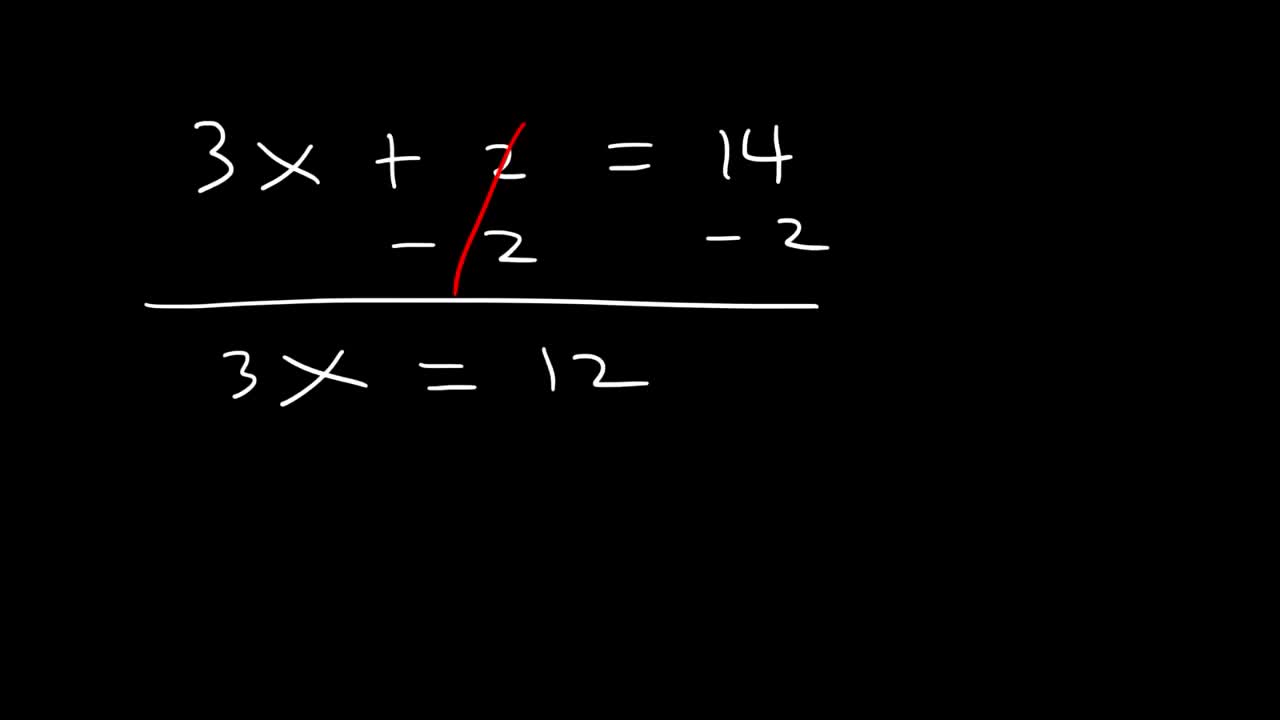 3x + 2 = 14
- 2 - 2
3x = 12